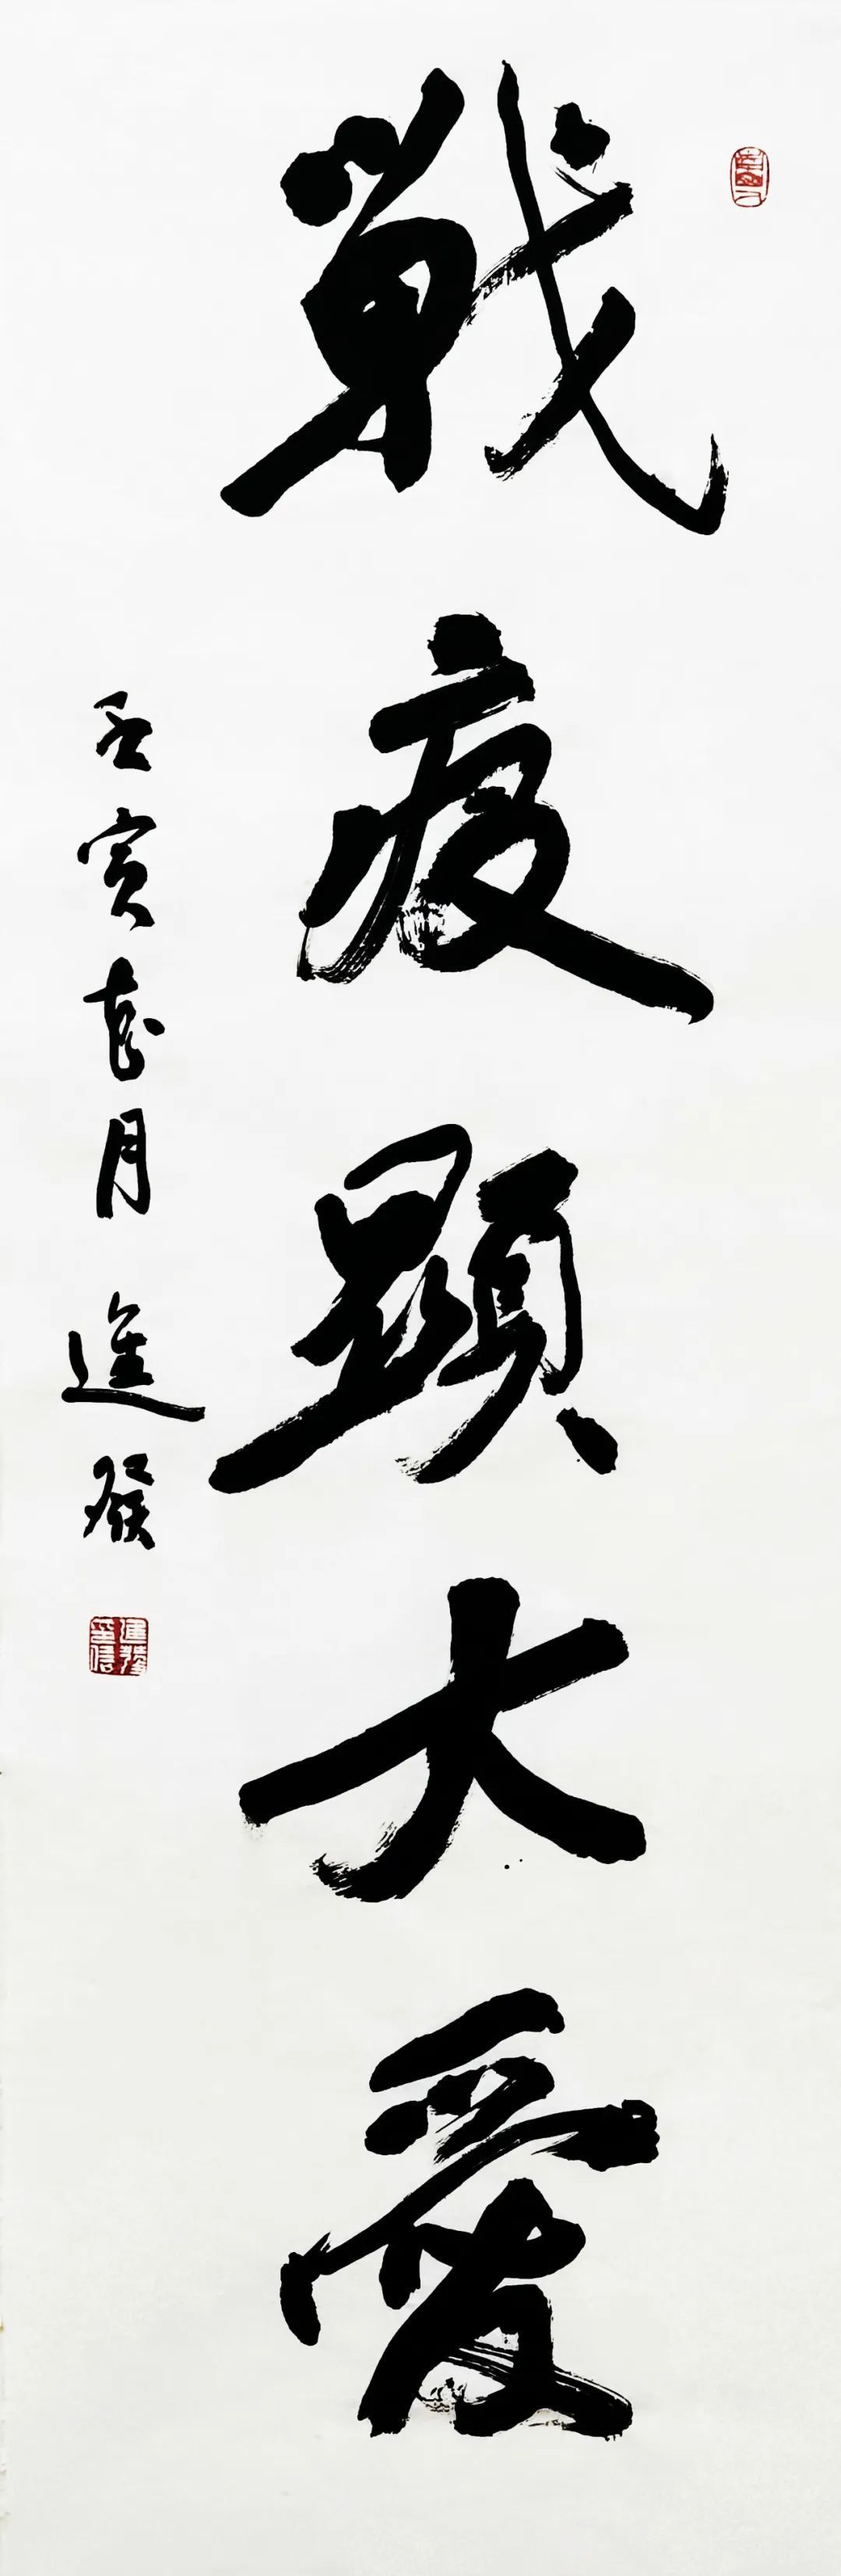 戰疫顯大愛
壬寅花月 進發